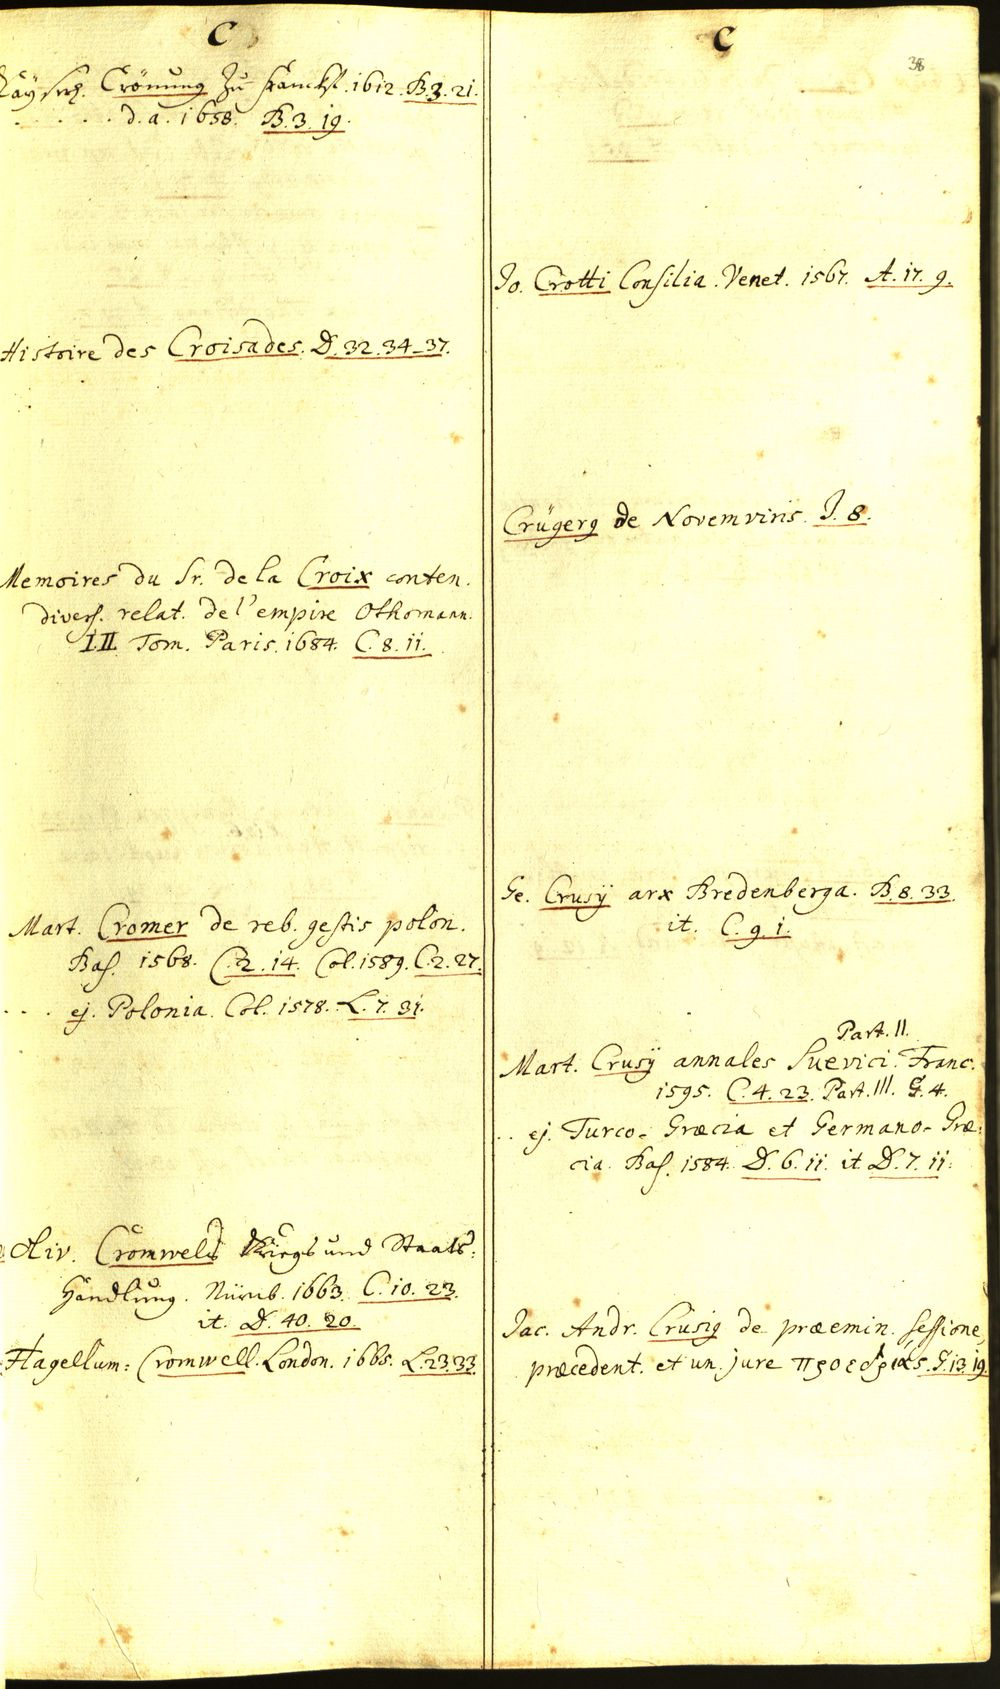 C
Käyserl. Crönung zu Franckf. 1612. B.3.21.
. . . . . d.a. 1658. B.3.19.
Histoire des Croisades. D.32.34-37.
Memoires du Sr. de la Croix conten.
divers. relat. de l'empire Othomann.
I.II. Tom. Paris. 1684. C.8.11.
Mart. Cromer de reb. gestis polon.
Bas. 1568. C.2.14. Col. 1589. C.2.27.
. . . ej. Polonia. Col. 1578. L.7.31.
Oliv. Cromwels Kriegs und Staats-
Handlung. Nürnb. 1663. C.10.23.
it. D.40.20.
Flagellum: Cromwell. London. 1665. L.23.33.
C
38
Jo. Crotti Consilia. Venet. 1567. A.17.9.
Crügerg de Novemviris. J.8.
Ge. Crusij arx Bredenberga. B.8.33.
it. C.9.1.
Part. II.
Mart. Crusij annales Suevici. Franc.
1595. C.4.23. Part. III. G.4.
. . ej. Turco-Græcia et Germano-Græ-
cia. Bas. 1584. D.6.11. it D.7.11.
Jac. Andr. Crusig de præemin. sessione,
præcedent. et un. jure προεδρίας. G.13.19.